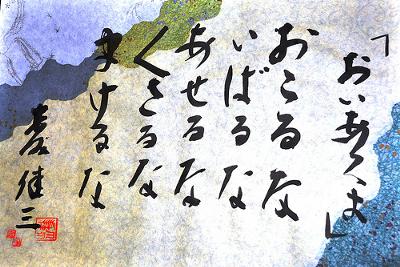 「おいあくま」
おこるな
いばるな
あせるな
くさるな
まけるな